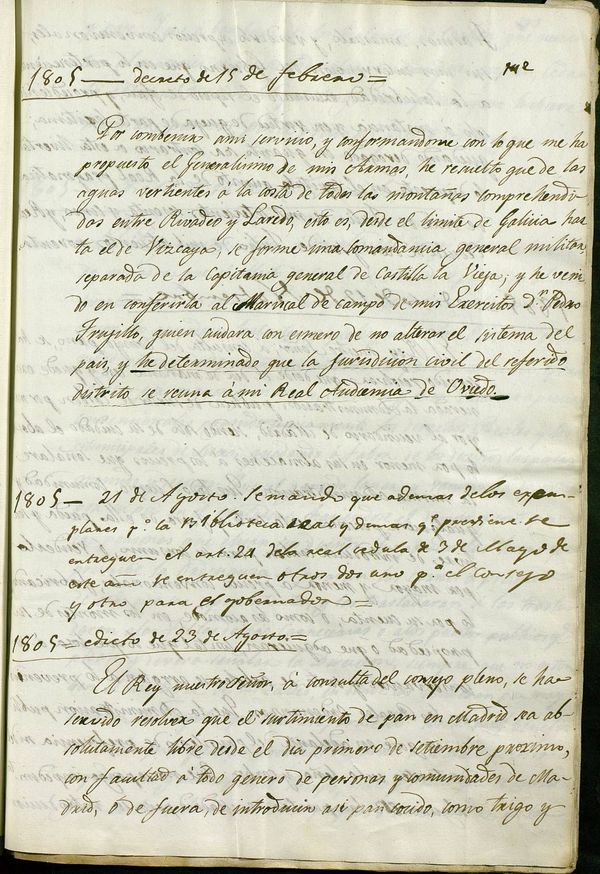 1805 — decreto de 15 de febrero =
Por combenir ami servicio, y conformandome con lo que me ha
propuesto el Generalisimo de mis Armas, he resuelto que de las
aguas vertientes á la costa de todas las montañas comprehendi-
das entre Rivadeo y Laredo, esto es, desde el limite de Galicia has
ta el de Vizcaya, se forme una comandancia general militar
separada de la Capitania general de Castilla la Vieja; y he veni
do en conferirla al Mariscal de campo de mis Exercitos Dn. Pedro
Trujillo, quien cuidara con esmero de no alterar el sistema del
pais, y he determinado que la Jurisdicion civil del referido
distrito se reuna á mi Real Audiencia de Oviedo.
1805 — 21 de Agosto. Se manda que ademas de los exem-
plares pa. la Biblioteca real y demas qe. previene se
entreguen el art. 24 dela real cedula de 3 de Mayo de
este año se entreguen otros dos uno pa. el Consejo
y otro para el gobernador =
1805 = edicto de 23 de Agosto. =
El Rey nuestro Señor, á consulta del consejo pleno, se ha
servido resolver que el surtimiento de pan en Madrid sea ab-
solutamente libre desde el dia primero de setiembre proximo,
con facultad á todo genero de personas y comunidades de Ma-
drid, ó de fuera, de introducir asi pan cocido, como trigo y